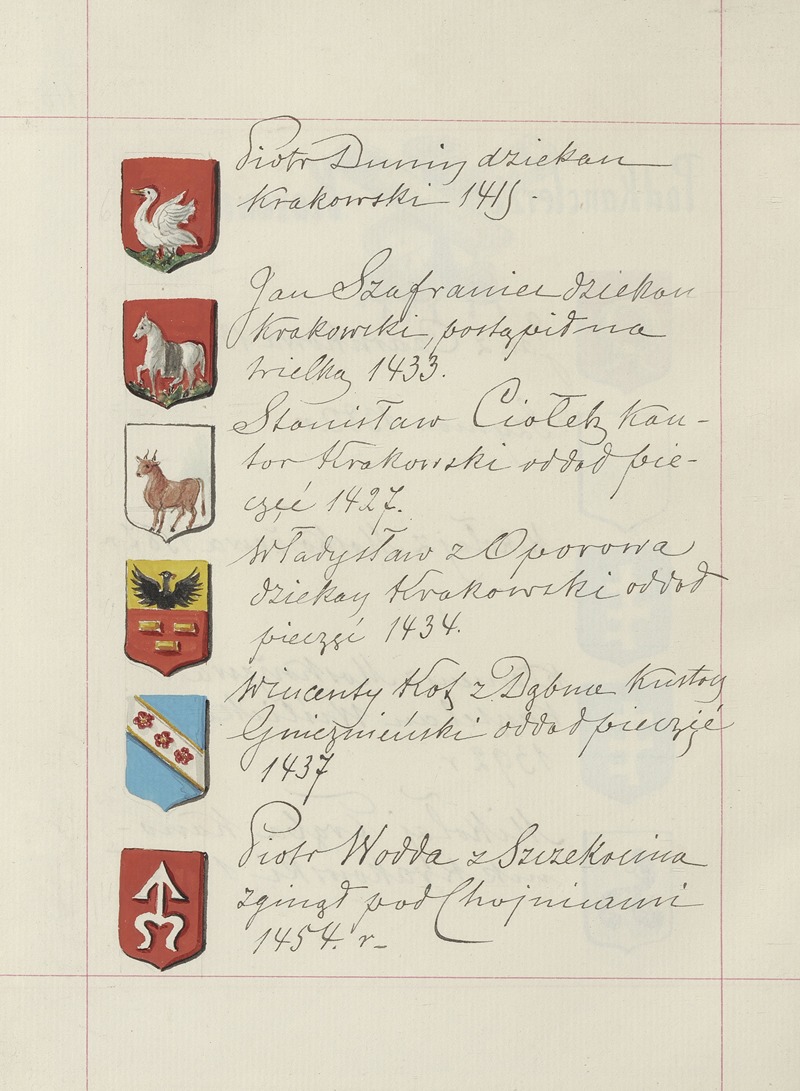 Piotr Dunin dziekan
Krakowski 1415.
Jan Szafraniec dziekan
Krakowski, postąpił na
wielką 1433.
Stanisław Ciołek Kan-
tor Krakowski oddał pie-
częć 1427.
Władysław z Oporowa
dziekan Krakowski oddał
pieczęć 1434.
Wincenty Kot z Dąbna Kustosz
Gnieznieński oddał pieczęć
1437
Piotr Wodda z Szczekocina
zginął pod Chojnicami
1454. r